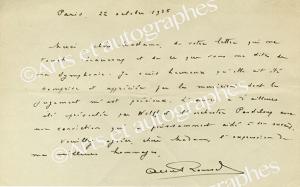 Paris, 22 octobre 1935
Merci chère Madame, de votre lettre qui me
touche beaucoup et de ce que vous me dites de
la Symphonie. Je suis heureux qu'elle ait été
comprise et appréciée par les musiciens dont le
jugement m'est précieux. d'ailleurs
été présentée par Wolff et l'orchestre Pasdeloup avec
une conviction qui ont aidé à son succès.
Veuillez agréer chère Madame, l'expression de
mes hommages.
Albert Roussel
© Arts et autographes